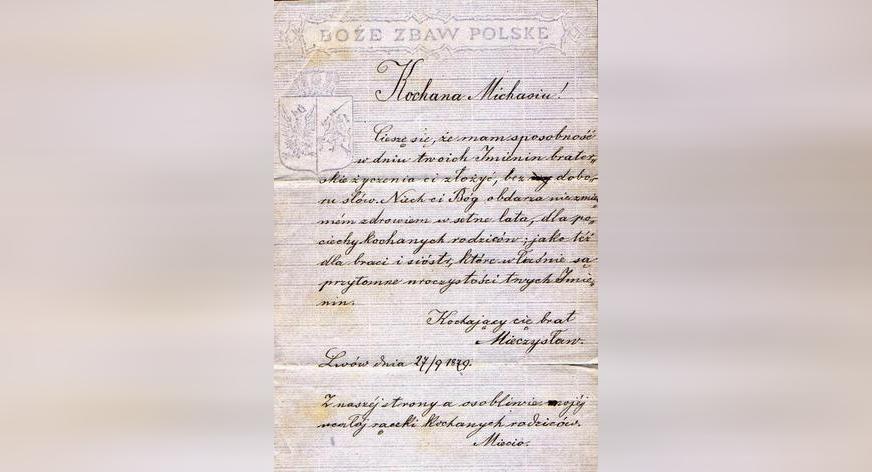 BOŻE ZBAW POLSKE
Kochana Michasiu!
Cieszę się, że mam sposobność
w dniu twoich Imienin brater,
skie życzenia ci złożyć, bez dobo,
ru słów. Niech ci Bóg obdarza niezmie,
mém zdrowiem w setne lata, dla po,
ciechy kochanych rodziców; jako téż
dla braci i sióstr, które właśnie są
przytomne uroczystości twych Imie,
nin.
Kochający cię brat
Mieczysław.
Lwów dnia 27/9 1879.
Z naszéj strony a osobliwie mojéj
rączki kochanych rodziców.
Miecio.